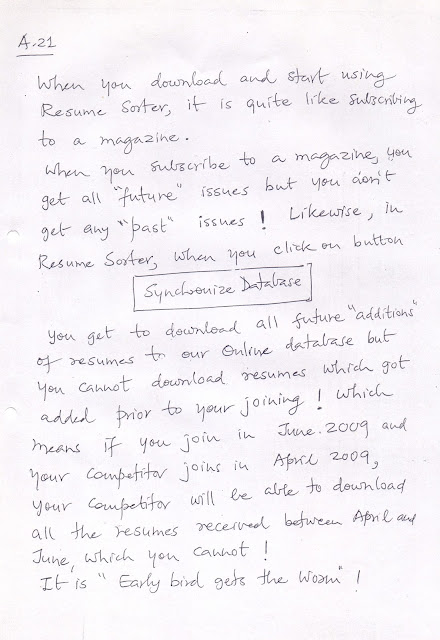 A.21
When you download and start using
Resume Sorter, it is quite like subscribing
to a magazine.
When you subscribe to a magazine, you
get all "future" issues but you don't
get any "past" issues! Likewise, in
Resume Sorter, when you click on button
Synchronize Database
You get to download all future "additions"
of resumes to our Online database but
you cannot download resumes which got
added prior to your joining! Which
means if you join in June.2009 and
your competitor joins in April 2009,
your competitor will be able to download
all the resumes received between April and
June, which you cannot!
It is "Early bird gets the worm"!